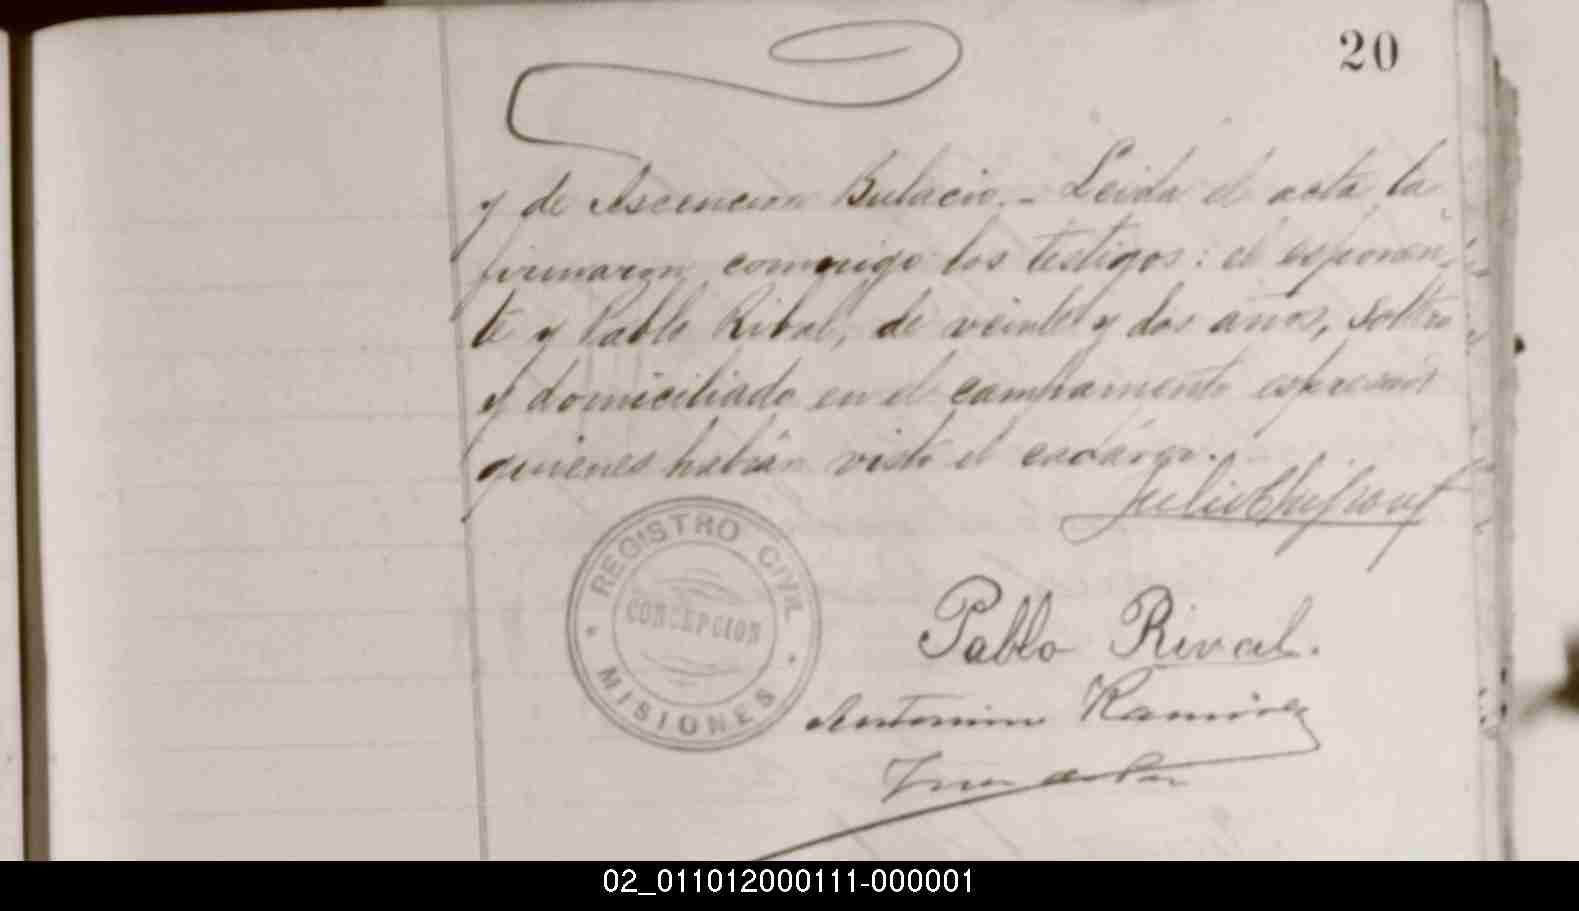 20
y de Ascencion Bulacio.- Leida el acta la
firmaron conmigo los testigos: el esponen-
te y Pablo Rival, de veinte y dos años, soltero
y domiciliado en el campamento espresado
quienes habian visto el cadáver.
Julio
REGISTRO CIVIL
CONCEPCION
MISIONES
Pablo Rival.
Antonino Ramirez
Juez de Paz
02_011012000111-000001